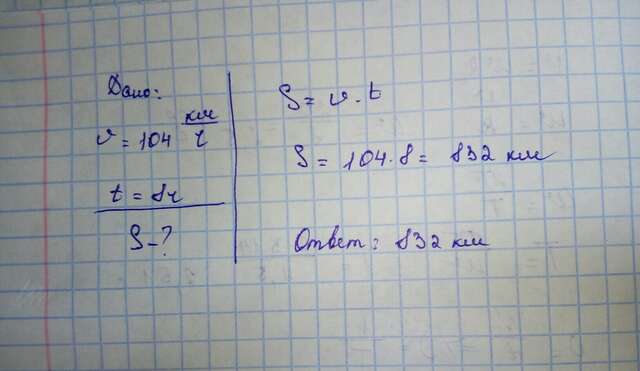 Дано:
v = 104 км/ч
t = 8ч
S - ?
S = v · t
S = 104 · 8 = 832 км
Ответ: 832 км